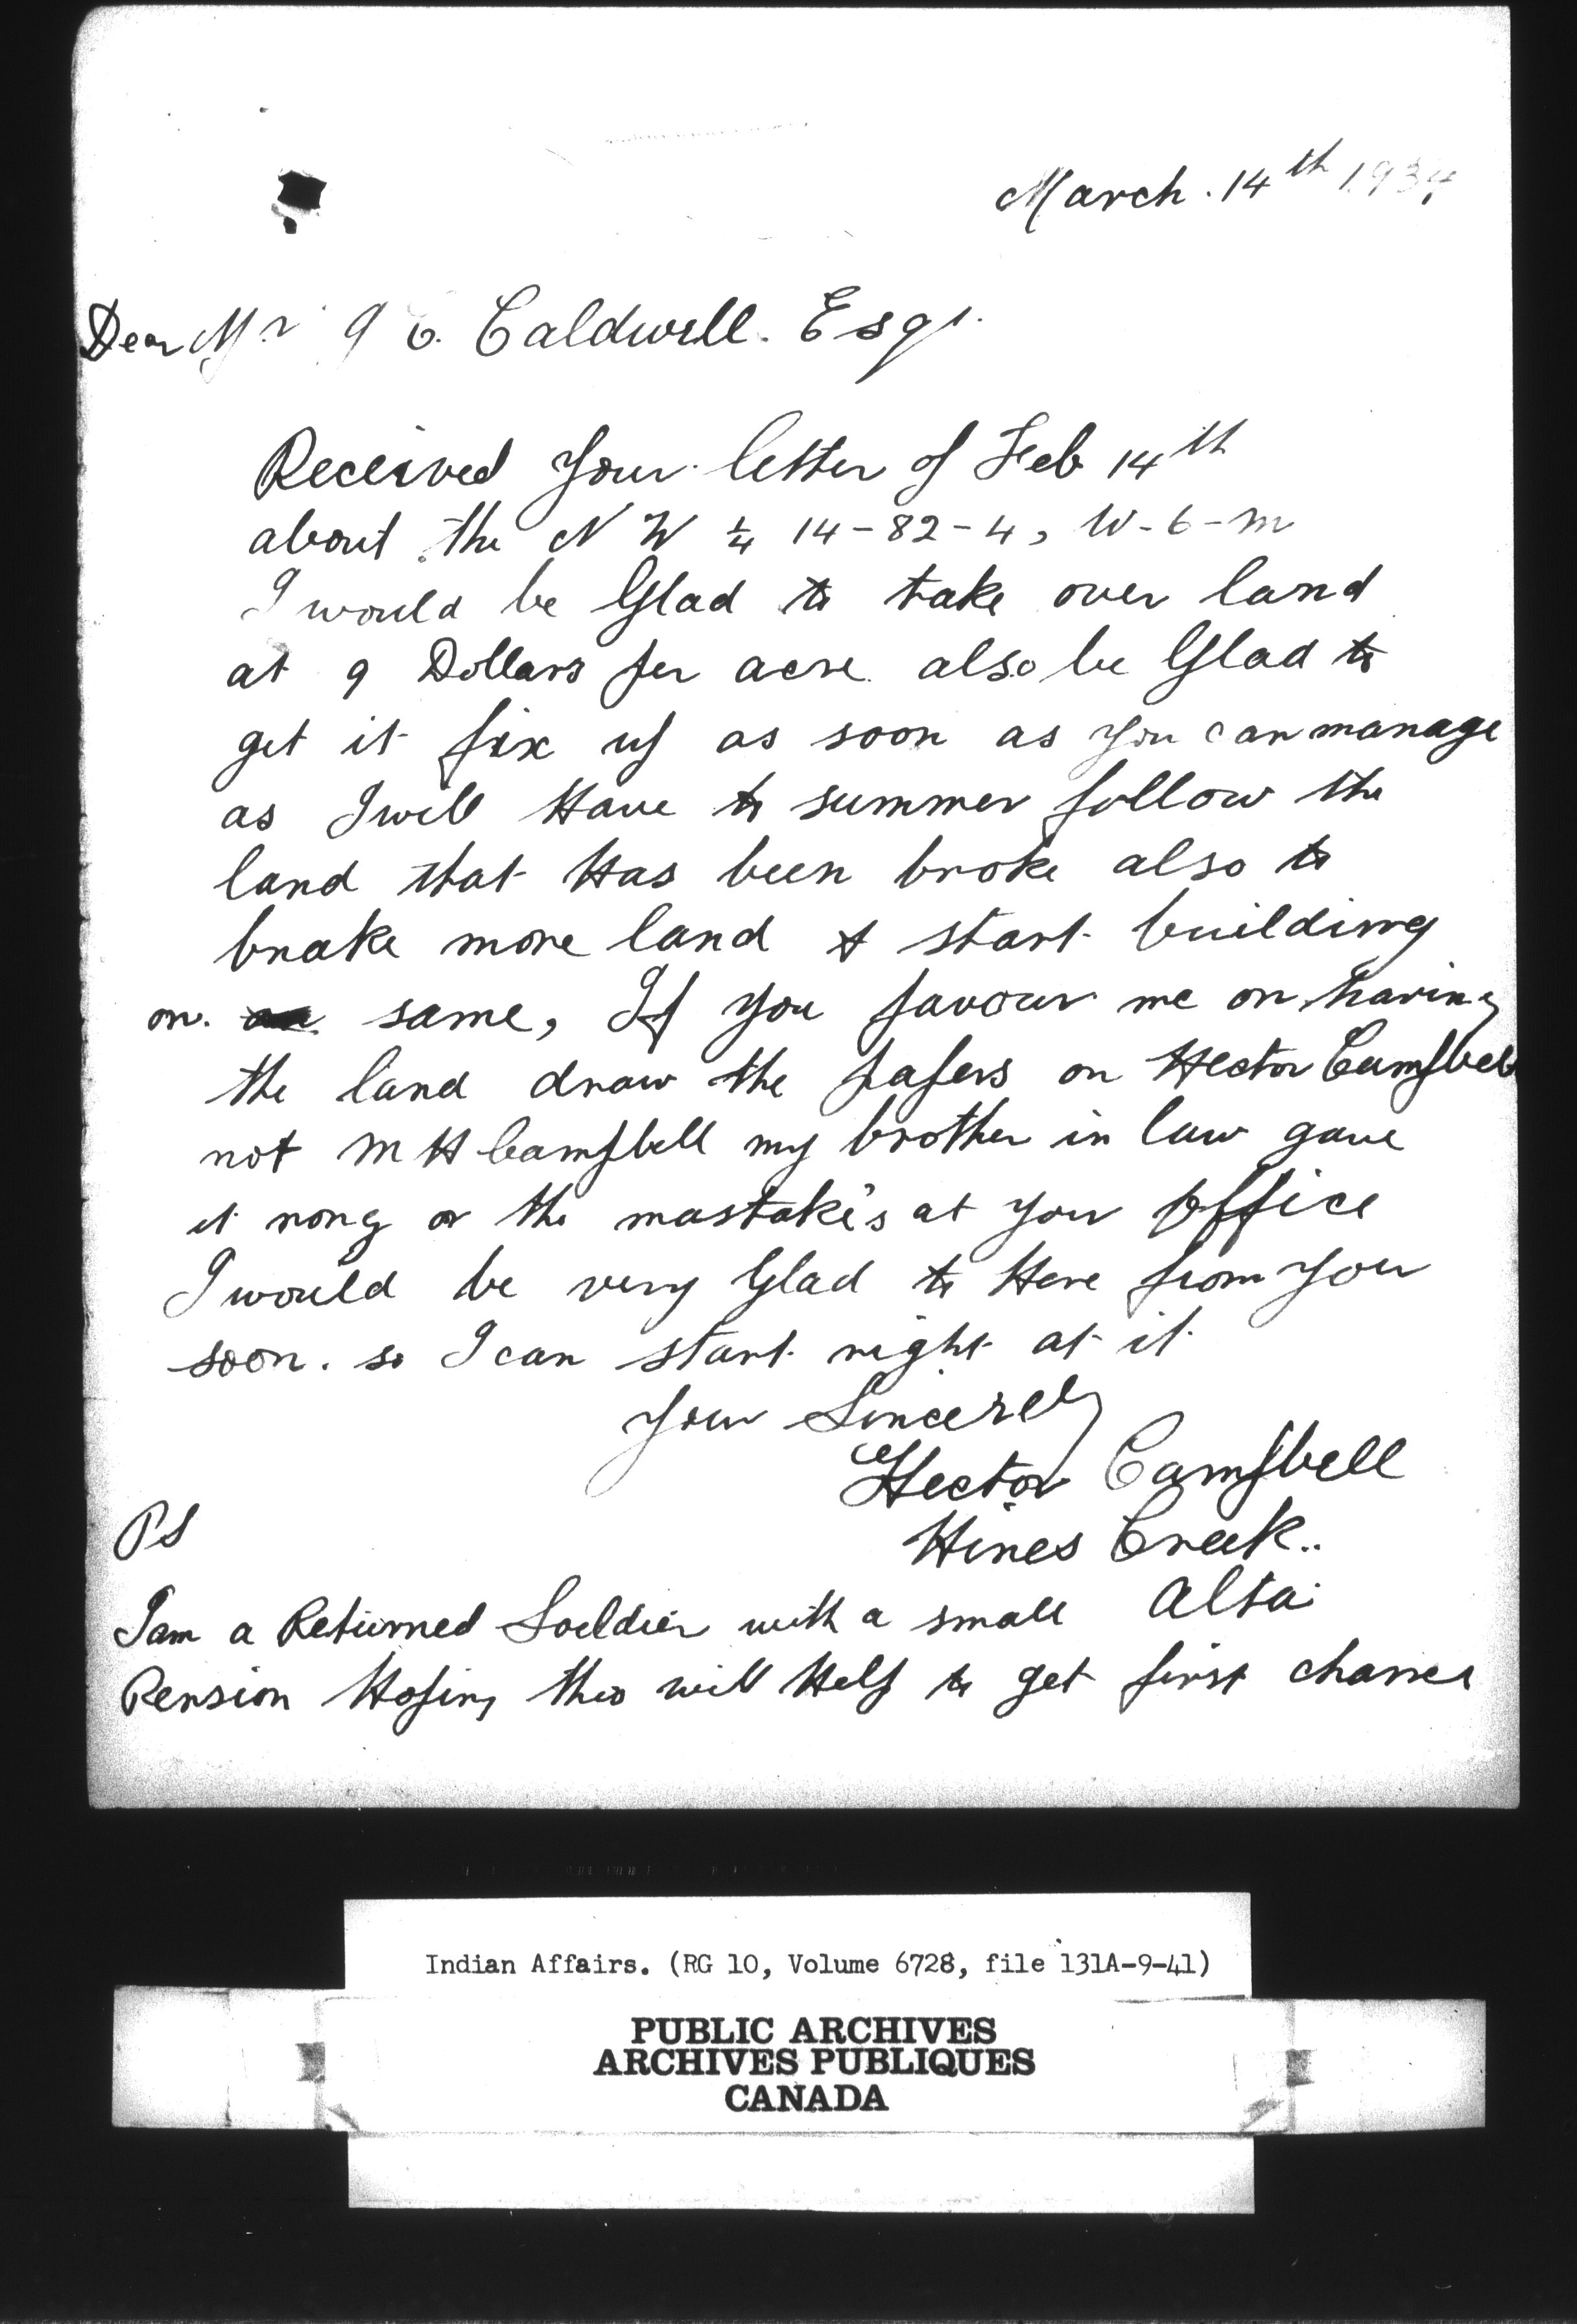 March. 14th 1934
Dear Mr G C. Caldwell. Esqr.
Received Your letter of Feb 14th
about the N W ¼ 14-82-4, W-6-m
I would be Glad to take over land
at 9 Dollars per acre also be Glad to
get it fix up as soon as you can manage
as I will Have to summer follow the
land that Has been broke also to
brake more land & start building
on. same, If you favour me on having
the land draw the papers on Hector Campbell
not M H Campbell my brother in law gave
it rong or the mastake's at your office
I would be very Glad to Here from you
soon. so I can start right at it
Your Sincerely
Hector Campbell
Hines Creek..
Alta
PS
I am a Returned Soeldier with a small
Pension Hoping this will Help to get first chance
Indian Affairs. (RG 10, Volume 6728, file 131A-9-41)
PUBLIC ARCHIVES
ARCHIVES PUBLIQUES
CANADA